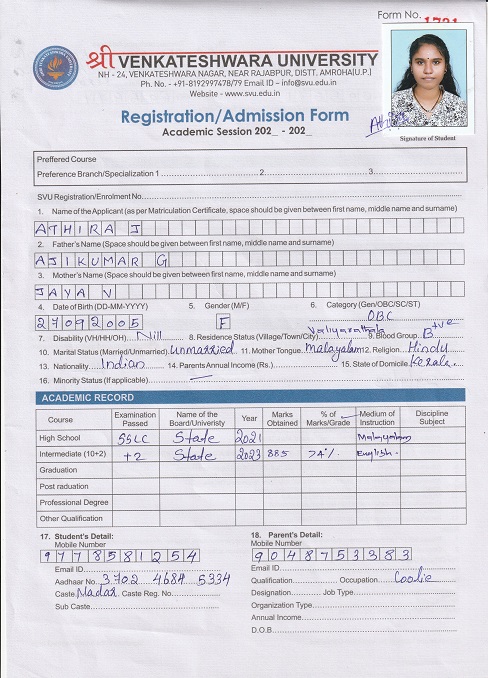 Form No. 1721
श्री VENKATESHWARA UNIVERSITY
NH - 24, VENKATESHWARA NAGAR, NEAR RAJABPUR, DISTT. AMROHA(U.P.)
Ph. No. - +91-8192997478/79 Email ID - info@svu.edu.in
Website - www.svu.edu.in
Registration/Admission Form
Academic Session 202_ - 202_
Signature of Student
Preffered Course
Preference Branch/Specialization 1 2. 3.
SVU Registration/Enrolment No.
1. Name of the Applicant (as per Matriculation Certificate, space should be given between first name, middle name and surname)
ATHIRA J
2. Father's Name (Space should be given between first name, middle name and surname)
AJIKUMAR G
3. Mother's Name (Space should be given between first name, middle name and surname)
JAYA V
4. Date of Birth (DD-MM-YYYY) 5. Gender (M/F) 6. Category (Gen/OBC/SC/ST)
27092005 F OBC
7. Disability (VH/HH/OH) Nill 8. Residence Status (Village/Town/City) 9. Blood Group B+ve
10. Marital Status (Married/Unmarried) Unmarried 11. Mother Tongue Malayalam 12. Religion Hindu
13. Nationality Indian 14. Parents Annual Income (Rs.) 15. State of Domicile Kerala.
16. Minority Status (If applicable)
ACADEMIC RECORD
Course Examination Passed Name of the Board/Univeristy Year Marks Obtained % of Marks/Grade Medium of Instruction Discipline Subject
High School SSLC State 2021 Malayalam
Intermediate (10+2) +2 State 2023 885 74%. English.
Graduation
Post raduation
Professional Degree
Other Qualification
17. Student's Detail: 18. Parent's Detail:
Mobile Number Mobile Number
9778581254 9048753383
Email ID Email ID
Aadhaar No. 3702 4684 5334 Qualification Occupation Coolie
Caste Nadar Caste Reg. No. Designation Job Type
Sub Caste Organization Type
Annual Income
D.O.B.